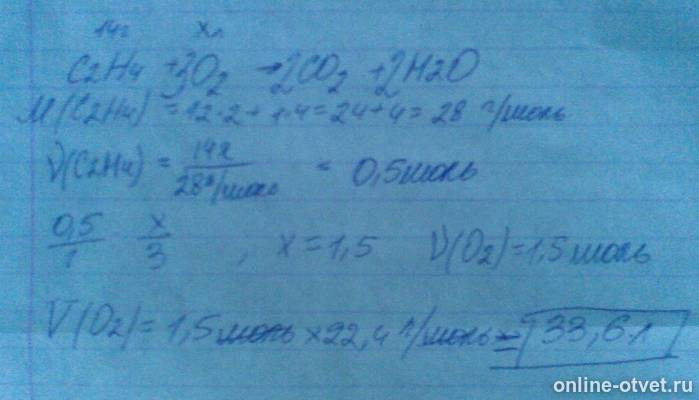 14г хл
C2H4 + 3O2 → 2CO2 + 2H2O
M(C2H4) = 12·2 + 1·4 = 24 + 4 = 28 г/моль
ν(C2H4) = 14г / 28г/моль = 0,5моль
0,5/1 x/3 ; x = 1,5 ν(O2) = 1,5моль
V(O2) = 1,5моль × 22,4 л/моль = 33,6л
online-otvet.ru